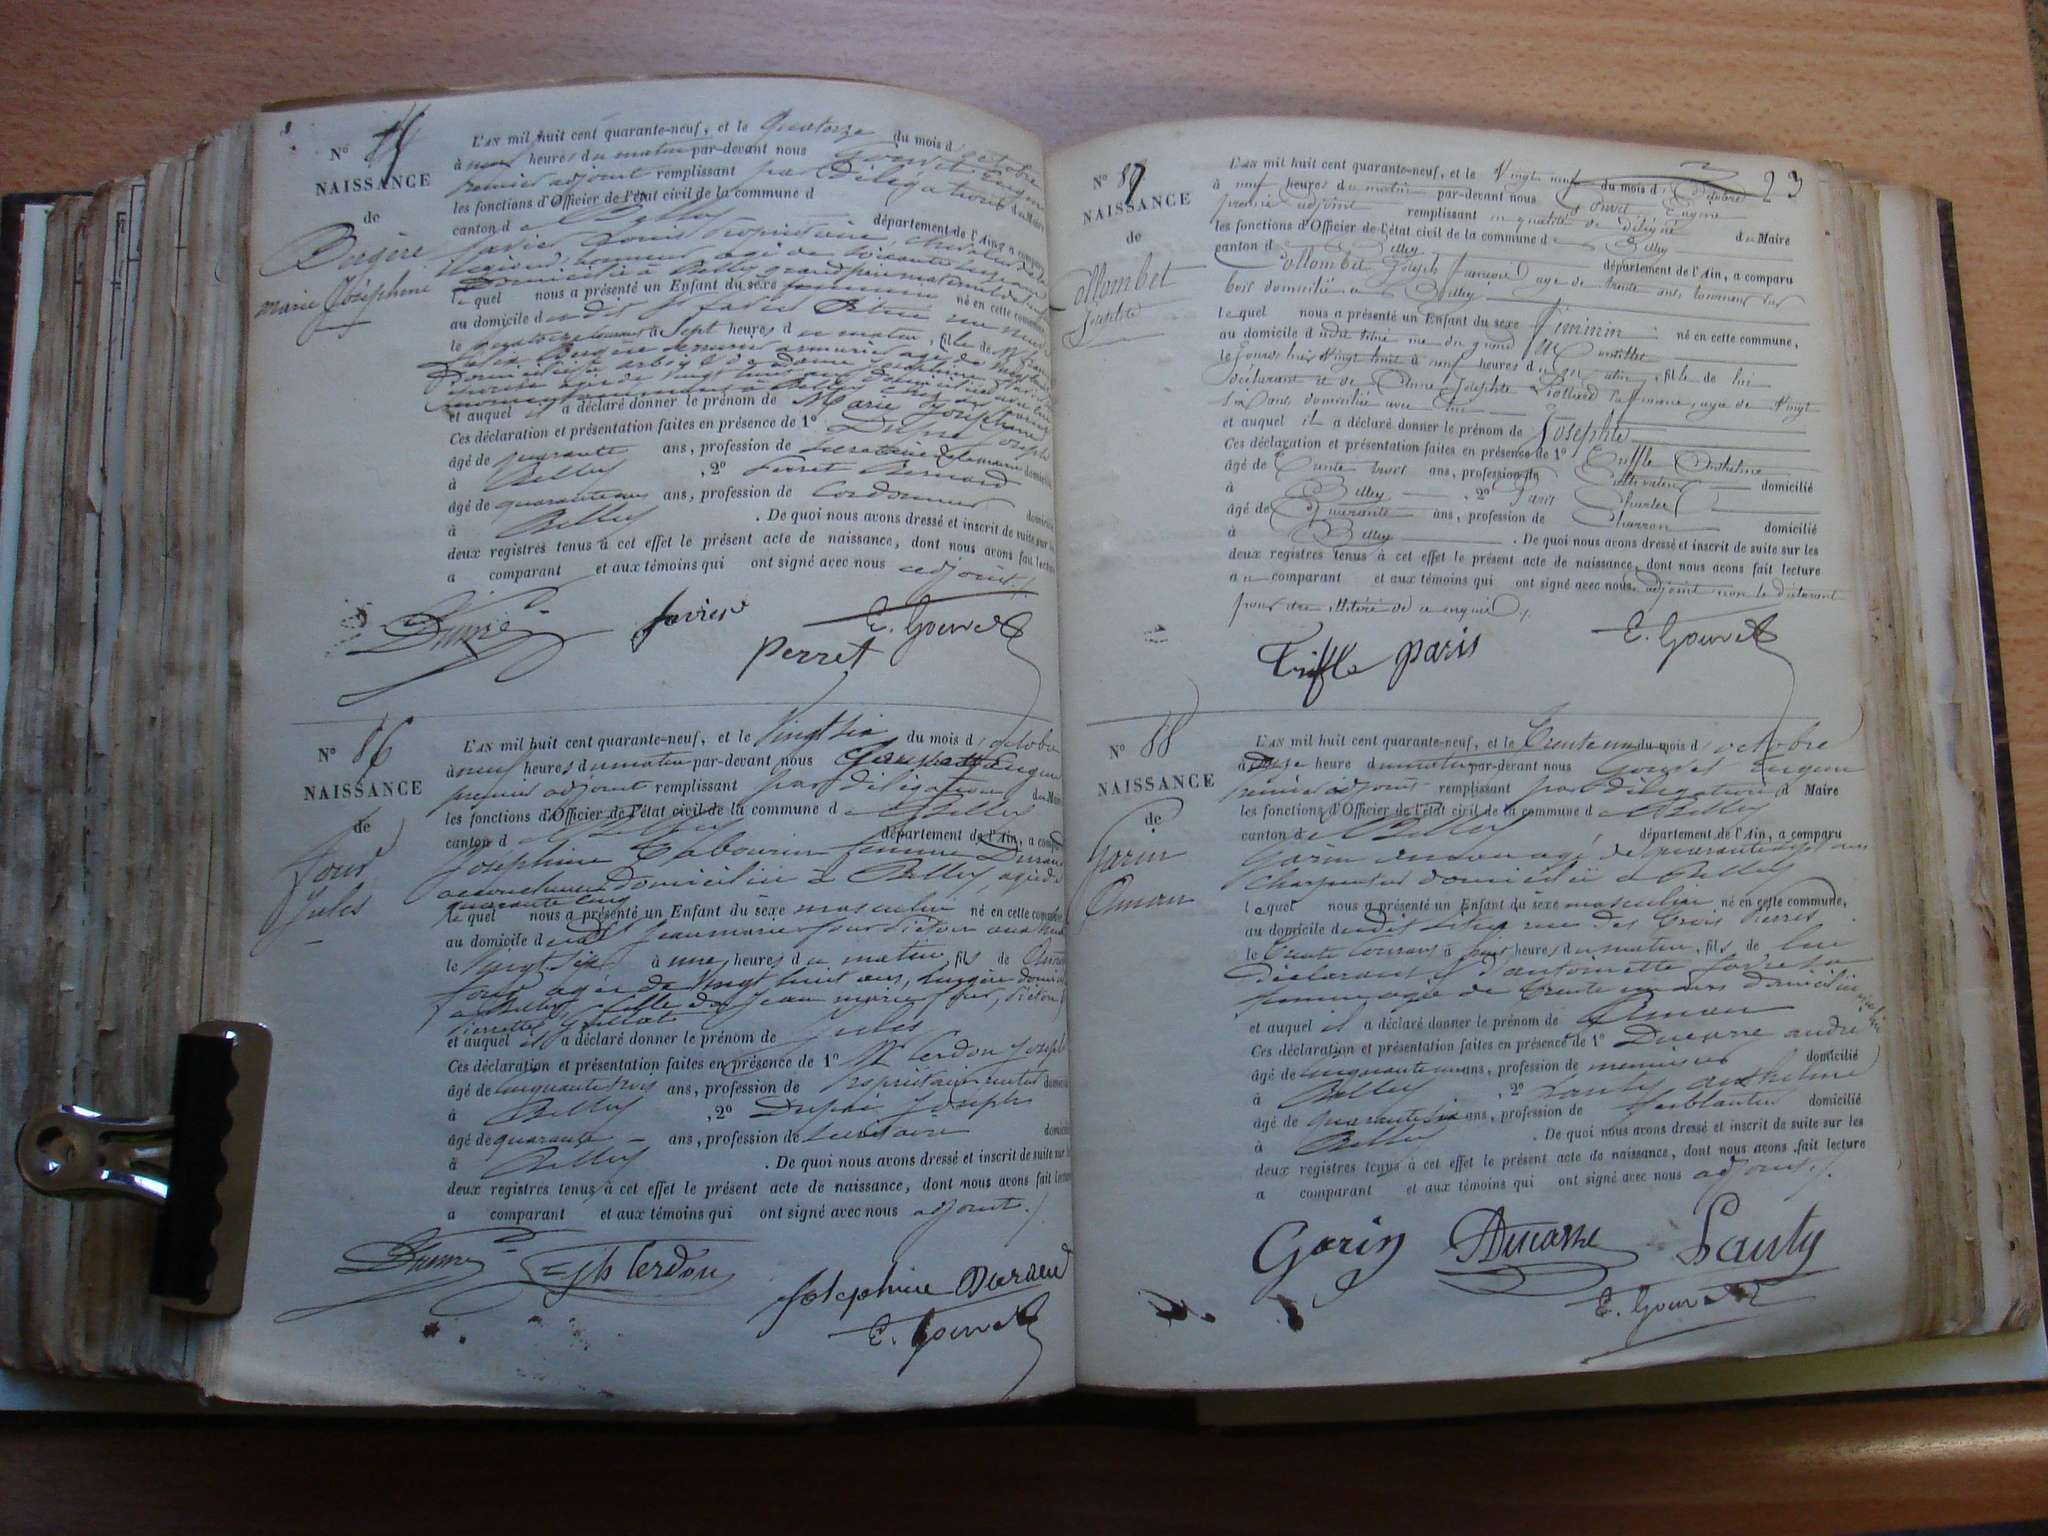 N° 85
NAISSANCE
de
Bugère
Marie Joséphine
L'AN mil huit cent quarante-neuf, et le Quatorze du mois d'octobre
à heures du matin par-devant nous Gouvet Eugène
premier adjoint remplissant par Délégation du Maire
les fonctions d'Officier de l'état civil de la commune d
canton d Belley département de l'Ain, a comparu
Louis Propriétaire, chevalier de la
légion d'honneur agé de soixante
domicilié à Belley grand père maternel de
lequel nous a présenté un Enfant du sexe féminin né en cette commune
au domicile du dit Sr
le quatorze à Sept heures du matin, fille de Mr
Bugère armurier agé de
Domicilié à de dame Joséphine
agée de vingt
à Belley
et auquel il a déclaré donner le prénom de Marie Joséphine
Ces déclaration et présentation faites en présence de 1° Dupré Joseph
âgé de quarante ans, profession de secrétaire de la mairie domicilié
à Belley , 2° Perret Bernard
âgé de quarante ans, profession de Cordonnier domicilié
à Belley . De quoi nous avons dressé et inscrit de suite sur les
deux registres tenus à cet effet le présent acte de naissance, dont nous avons fait lecture
a comparant et aux témoins qui ont signé avec nous adjoint ./.
Dupré Favier E. Gouvet
Perret
N° 86
NAISSANCE
de
Four
Jules
L'AN mil huit cent quarante-neuf, et le Vingt six du mois d'octobre
à neuf heures du matin par-devant nous Gouvet Eugène
premier adjoint remplissant par délégation du Maire
les fonctions d'Officier de l'état civil de la commune d Belley
canton d Belley département de l'Ain, a comparu
Joséphine Tabourin femme Durand
accoucheuse domiciliée à Belley, agée de
quarante cinq
lequel nous a présenté un Enfant du sexe masculin né en cette commune
au domicile du dit Jean marie four Piéton
le Vingt six à une heures du matin, fils de
four agée de Vingt huit ans, lingère
à Belley, fille de Jean marie four, Piéton
Pierrette
et auquel il a déclaré donner le prénom de Jules
Ces déclaration et présentation faites en présence de 1° Mr Cerdon Joseph
âgé de cinquante trois ans, profession de Propriétaire rentier domicilié
à Belley , 2° Dupré Joseph
âgé de quarante ans, profession de secrétaire domicilié
à Belley . De quoi nous avons dressé et inscrit de suite sur les
deux registres tenus à cet effet le présent acte de naissance, dont nous avons fait lecture
a comparant et aux témoins qui ont signé avec nous adjoint ./
Dupré Jh Cerdon
Joséphine Durand
E. Gouvet
23
N° 87
NAISSANCE
de
Collombet
Josephte
L'AN mil huit cent quarante-neuf, et le Vingt neuf du mois d'Octobre
à neuf heures du matin par-devant nous Gouvet Eugène
premier adjoint remplissant en qualité de délégué du Maire
les fonctions d'Officier de l'état civil de la commune de Belley
canton de Belley département de l'Ain, a comparu
Collombet Joseph François agé de trente ans, tourneur sur
bois domicilié à Belley
lequel nous a présenté un Enfant du sexe Féminin né en cette commune,
au domicile dudit situé rue du grand
le à neuf heures du matin, fille de lui
déclarant et de Anne Josephte sa femme, agée de Vingt
six ans domiciliée avec lui
et auquel il a déclaré donner le prénom de Josephte
Ces déclaration et présentation faites en présence de 1° Truffle Anthelme
âgé de Trente trois ans, profession de Cultivateur domicilié
à Belley , 2° Paris Charles
âgé de Quarante ans, profession de Charron domicilié
à Belley . De quoi nous avons dressé et inscrit de suite sur les
deux registres tenus à cet effet le présent acte de naissance, dont nous avons fait lecture
au comparant et aux témoins qui ont signé avec nous adjoint non le déclarant
pour être illitéré de ce enquis ./.
Truffle paris E. Gouvet
N° 88
NAISSANCE
de
Gorin
Aman
L'AN mil huit cent quarante-neuf, et le Trente un du mois d'octobre
à heure du matin par-devant nous Gouvet Eugène
premier adjoint remplissant par délégation d Maire
les fonctions d'Officier de l'état civil de la commune d Belley
canton d Belley département de l'Ain, a comparu
Gorin agé de quarante sept ans
Charpentier domicilié à Belley
lequel nous a présenté un Enfant du sexe masculin né en cette commune,
au domicile dudit situé rue des trois Pierres
le trente courant à heures du matin, fils de lui
Déclarant & d'antoinette favre sa
femme, agée de trente un ans domiciliée
et auquel il a déclaré donner le prénom de Aman
Ces déclaration et présentation faites en présence de 1° Ducarre andré
âgé de cinquante un ans, profession de menuisier domicilié
à Belley , 2° Lauty anthelme
âgé de quarante six ans, profession de ferblantier domicilié
à Belley . De quoi nous avons dressé et inscrit de suite sur les
deux registres tenus à cet effet le présent acte de naissance, dont nous avons fait lecture
a comparant et aux témoins qui ont signé avec nous adjoint ./.
Gorin Ducarre Lauty
E. Gouvet